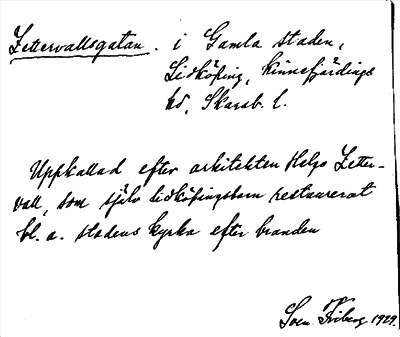 Zettervallsgatan. i Gamla staden,
Lidköping, Kinnefjärdings
hd, Skarab. l.
Uppkallad efter arkitekten Helgo Zetter-
vall, som själv Lidköpingsbarn restaurerat
bl. a. stadens kyrka efter branden
Sven Friberg 1929.